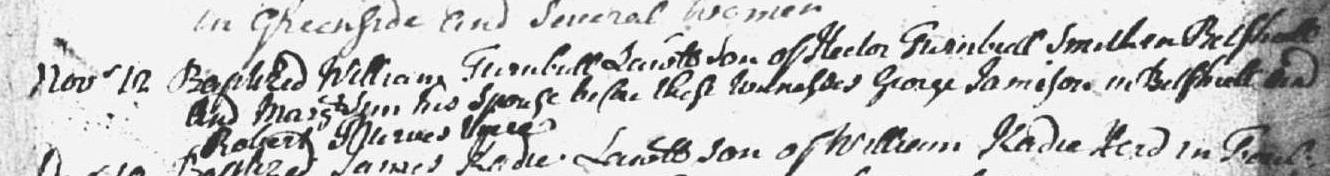 in Greenside and Several women
Novr 12 Baptized William Turnbull Lawll Son of Hector Turnbull Smith in Belshiell
and Margt his Spouse before these Witnesses George Jamison in Belshiell and
Robert Purves
Baptized James Kadie Lawll Son of William Kadie Herd in